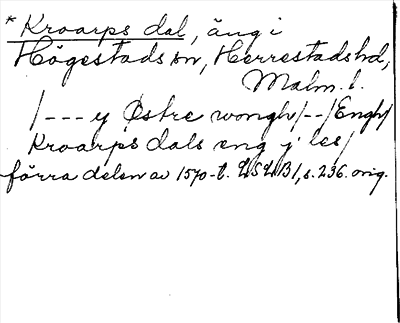 * Kroarps dal, äng i
Högestads sn, Herrestads hd,
Malm. l.
/--- y Østre wongh/--/Engh/
Kroarps dals eng j les/
förra delen av 1570-t. LSLB1, s. 236. orig.